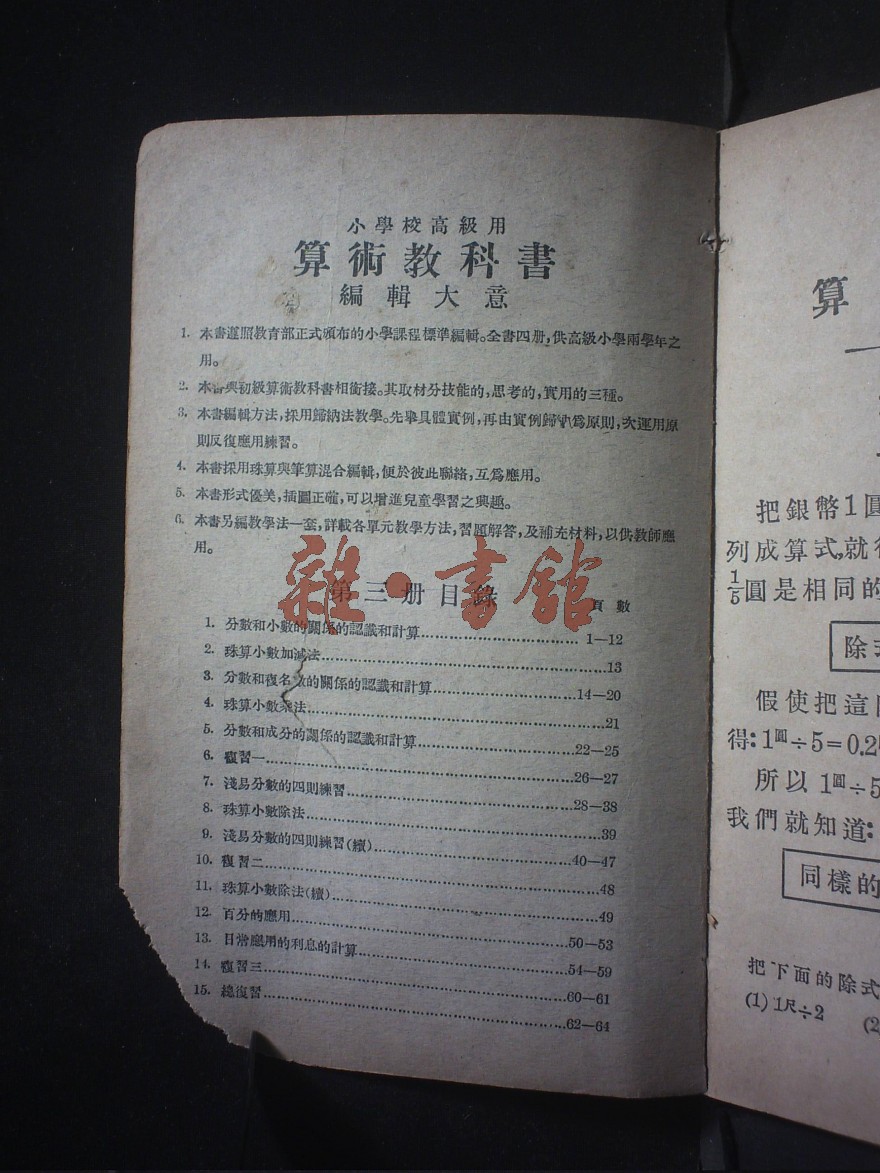 小學校高級用
算術教科書
編輯大意
1. 本書遵照教育部正式頒布的小學課程標準編輯。全書四册,供高級小學兩學年之
用。
2. 本書與初級算術教科書相銜接。其取材分技能的,思考的,實用的三種。
3. 本書編輯方法,採用歸納法教學。先舉具體實例,再由實例歸爲原則,次運用原
則反復應用練習。
4. 本書採用珠算與筆算混合編輯,便於彼此聯絡,互爲應用。
5. 本書形式優美,插圖正確,可以增進兒童學習之興趣。
6. 本書另編教學法一套,詳載各單元教學方法,習題解答,及補充材料,以供教師應
用。
雜·書館
第三册目錄
頁數
1. 分數和小數的關係的認識和計算 1—12
2. 珠算小數加減法 13
3. 分數和複名數的關係的認識和計算 14—20
4. 珠算小數乘法 21
5. 分數和成分的關係的認識和計算 22—25
6. 複習一 26—27
7. 淺易分數的四則練習 28—38
8. 珠算小數除法 39
9. 淺易分數的四則練習(續) 40—47
10. 複習二 48
11. 珠算小數除法(續) 49
12. 百分的應用 50—53
13. 日常應用的利息的計算 54—59
14. 複習三 60—61
15. 總復習 62—64
算
把銀幣1圓
列成算式,就
1/5圓是相同的
除
假使把這
得:1圓÷5=0.2
所以1圓÷5
我們就知道:
同樣的
把下面的除式
(1) 1尺÷2 (2)